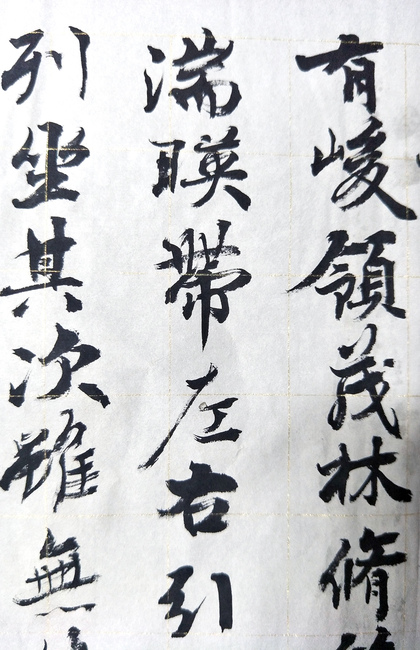 有峻領茂林脩
湍暎帶左右引
列坐其次雖無